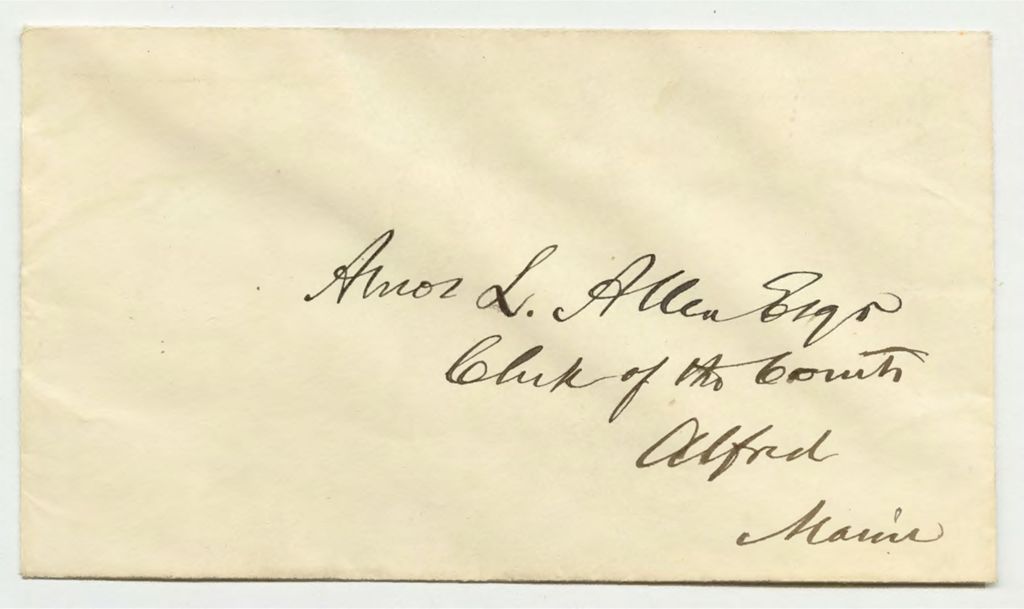 Amos L. Allen Esqr
Clerk of the Courts
Alfred
Maine